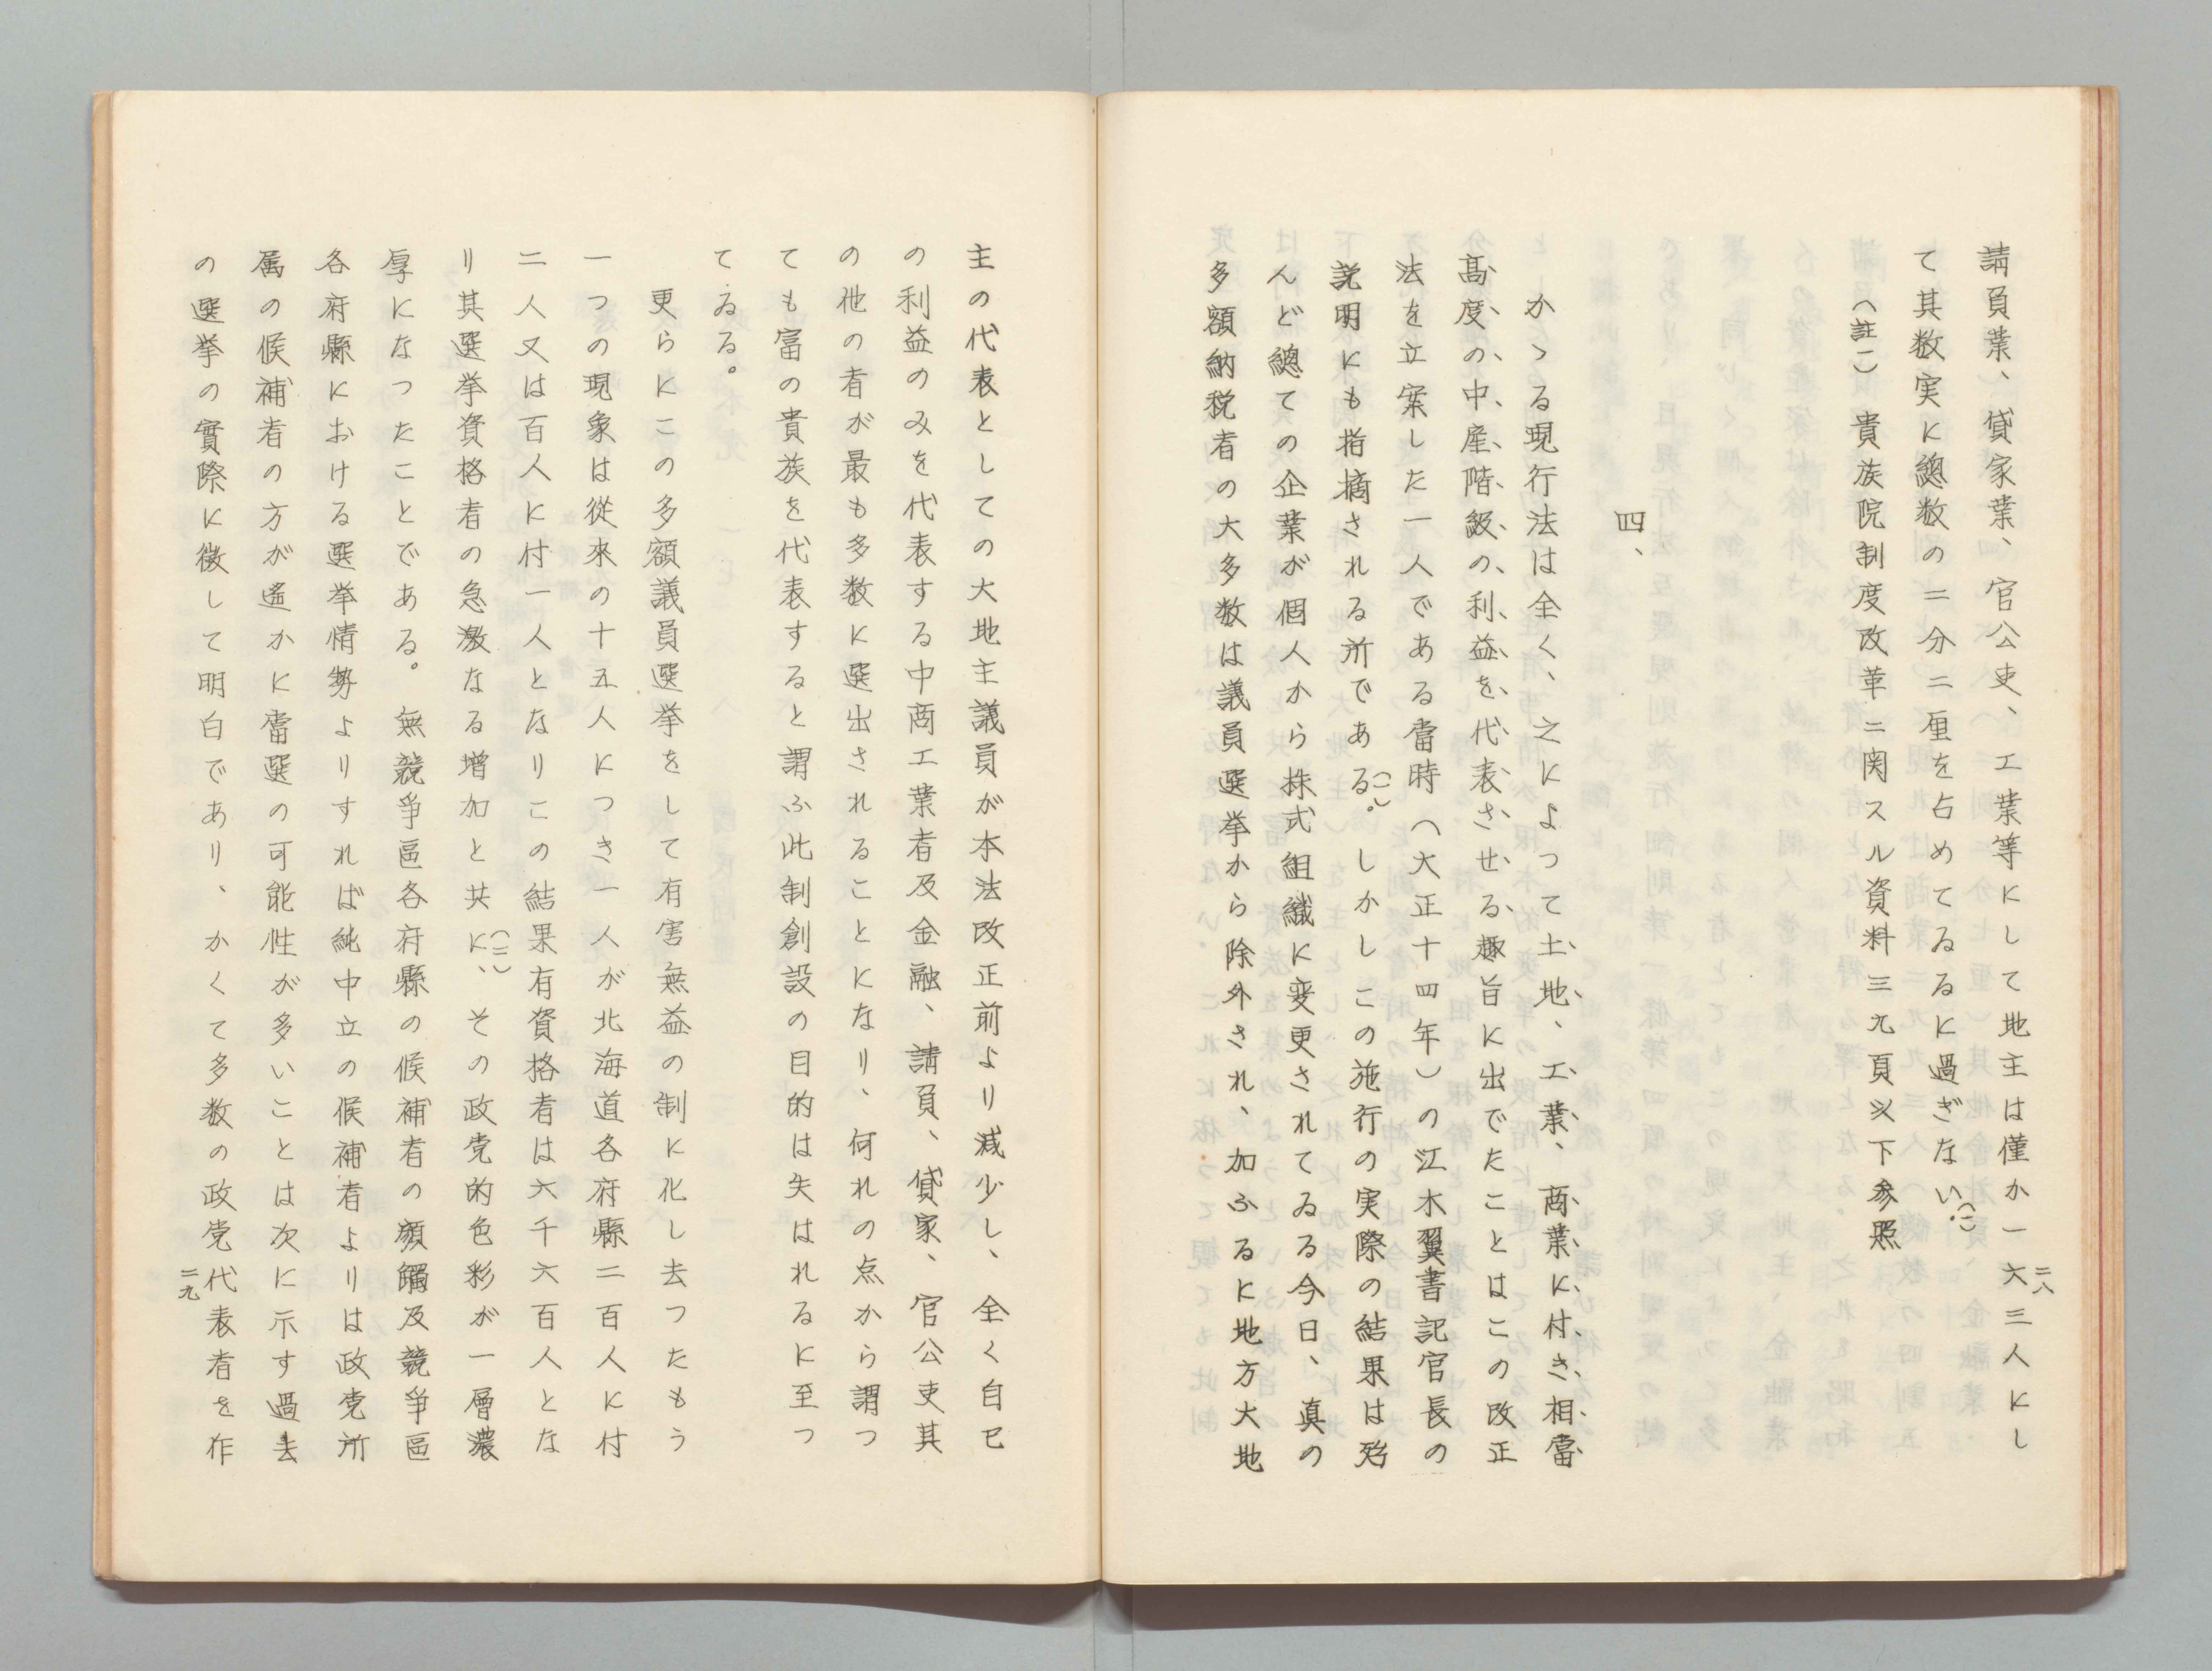 請負業、貸家業、官公吏、工業等にして地主は僅か一六三人にし
て其数実に總数の二分二厘を占めてゐるに過ぎない。(一)
(註一) 貴族院制度改革ニ関スル資料三九頁以下参照
四、
かゝる現行法は全く、之によって土地、工業、商業に付き相當
高度の中産階級の利益を代表させる趣旨に出でたことはこの改正
法を立案した一人である當時(大正十四年)の江木翼書記官長の
説明にも指摘される所である。(一)しかしこの施行の実際の結果は殆
んど總ての企業が個人から株式組織に変更されてゐる今日、真の
多額納税者の大多数は議員選挙から除外され、加ふるに地方大地
二八
主の代表としての大地主議員が本法改正前より減少し、全く自己
の利益のみを代表する中商工業者及金融、請負、貸家、官公吏其
の他の者が最も多数に選出されることになり、何れの点から謂つ
ても富の貴族を代表すると謂ふ此制創設の目的は失はれるに至つ
てゐる。
更らにこの多額議員選挙をして有害無益の制に化し去つたもう
一つの現象は従來の十五人につき一人が北海道各府縣二百人に付
二人又は百人に付一人となりこの結果有資格者は六千六百人とな
り其選挙資格者の急激なる増加と共に、(二)その政党的色彩が一層濃
厚になつたことである。無競爭區各府縣の候補者の顔觸及競爭區
各府縣における選挙情勢よりすれば純中立の候補者よりは政党所
属の候補者の方が遙かに當選の可能性が多いことは次に示す過去
の選挙の實際に徴して明白であり、かくて多数の政党代表者を作
二九